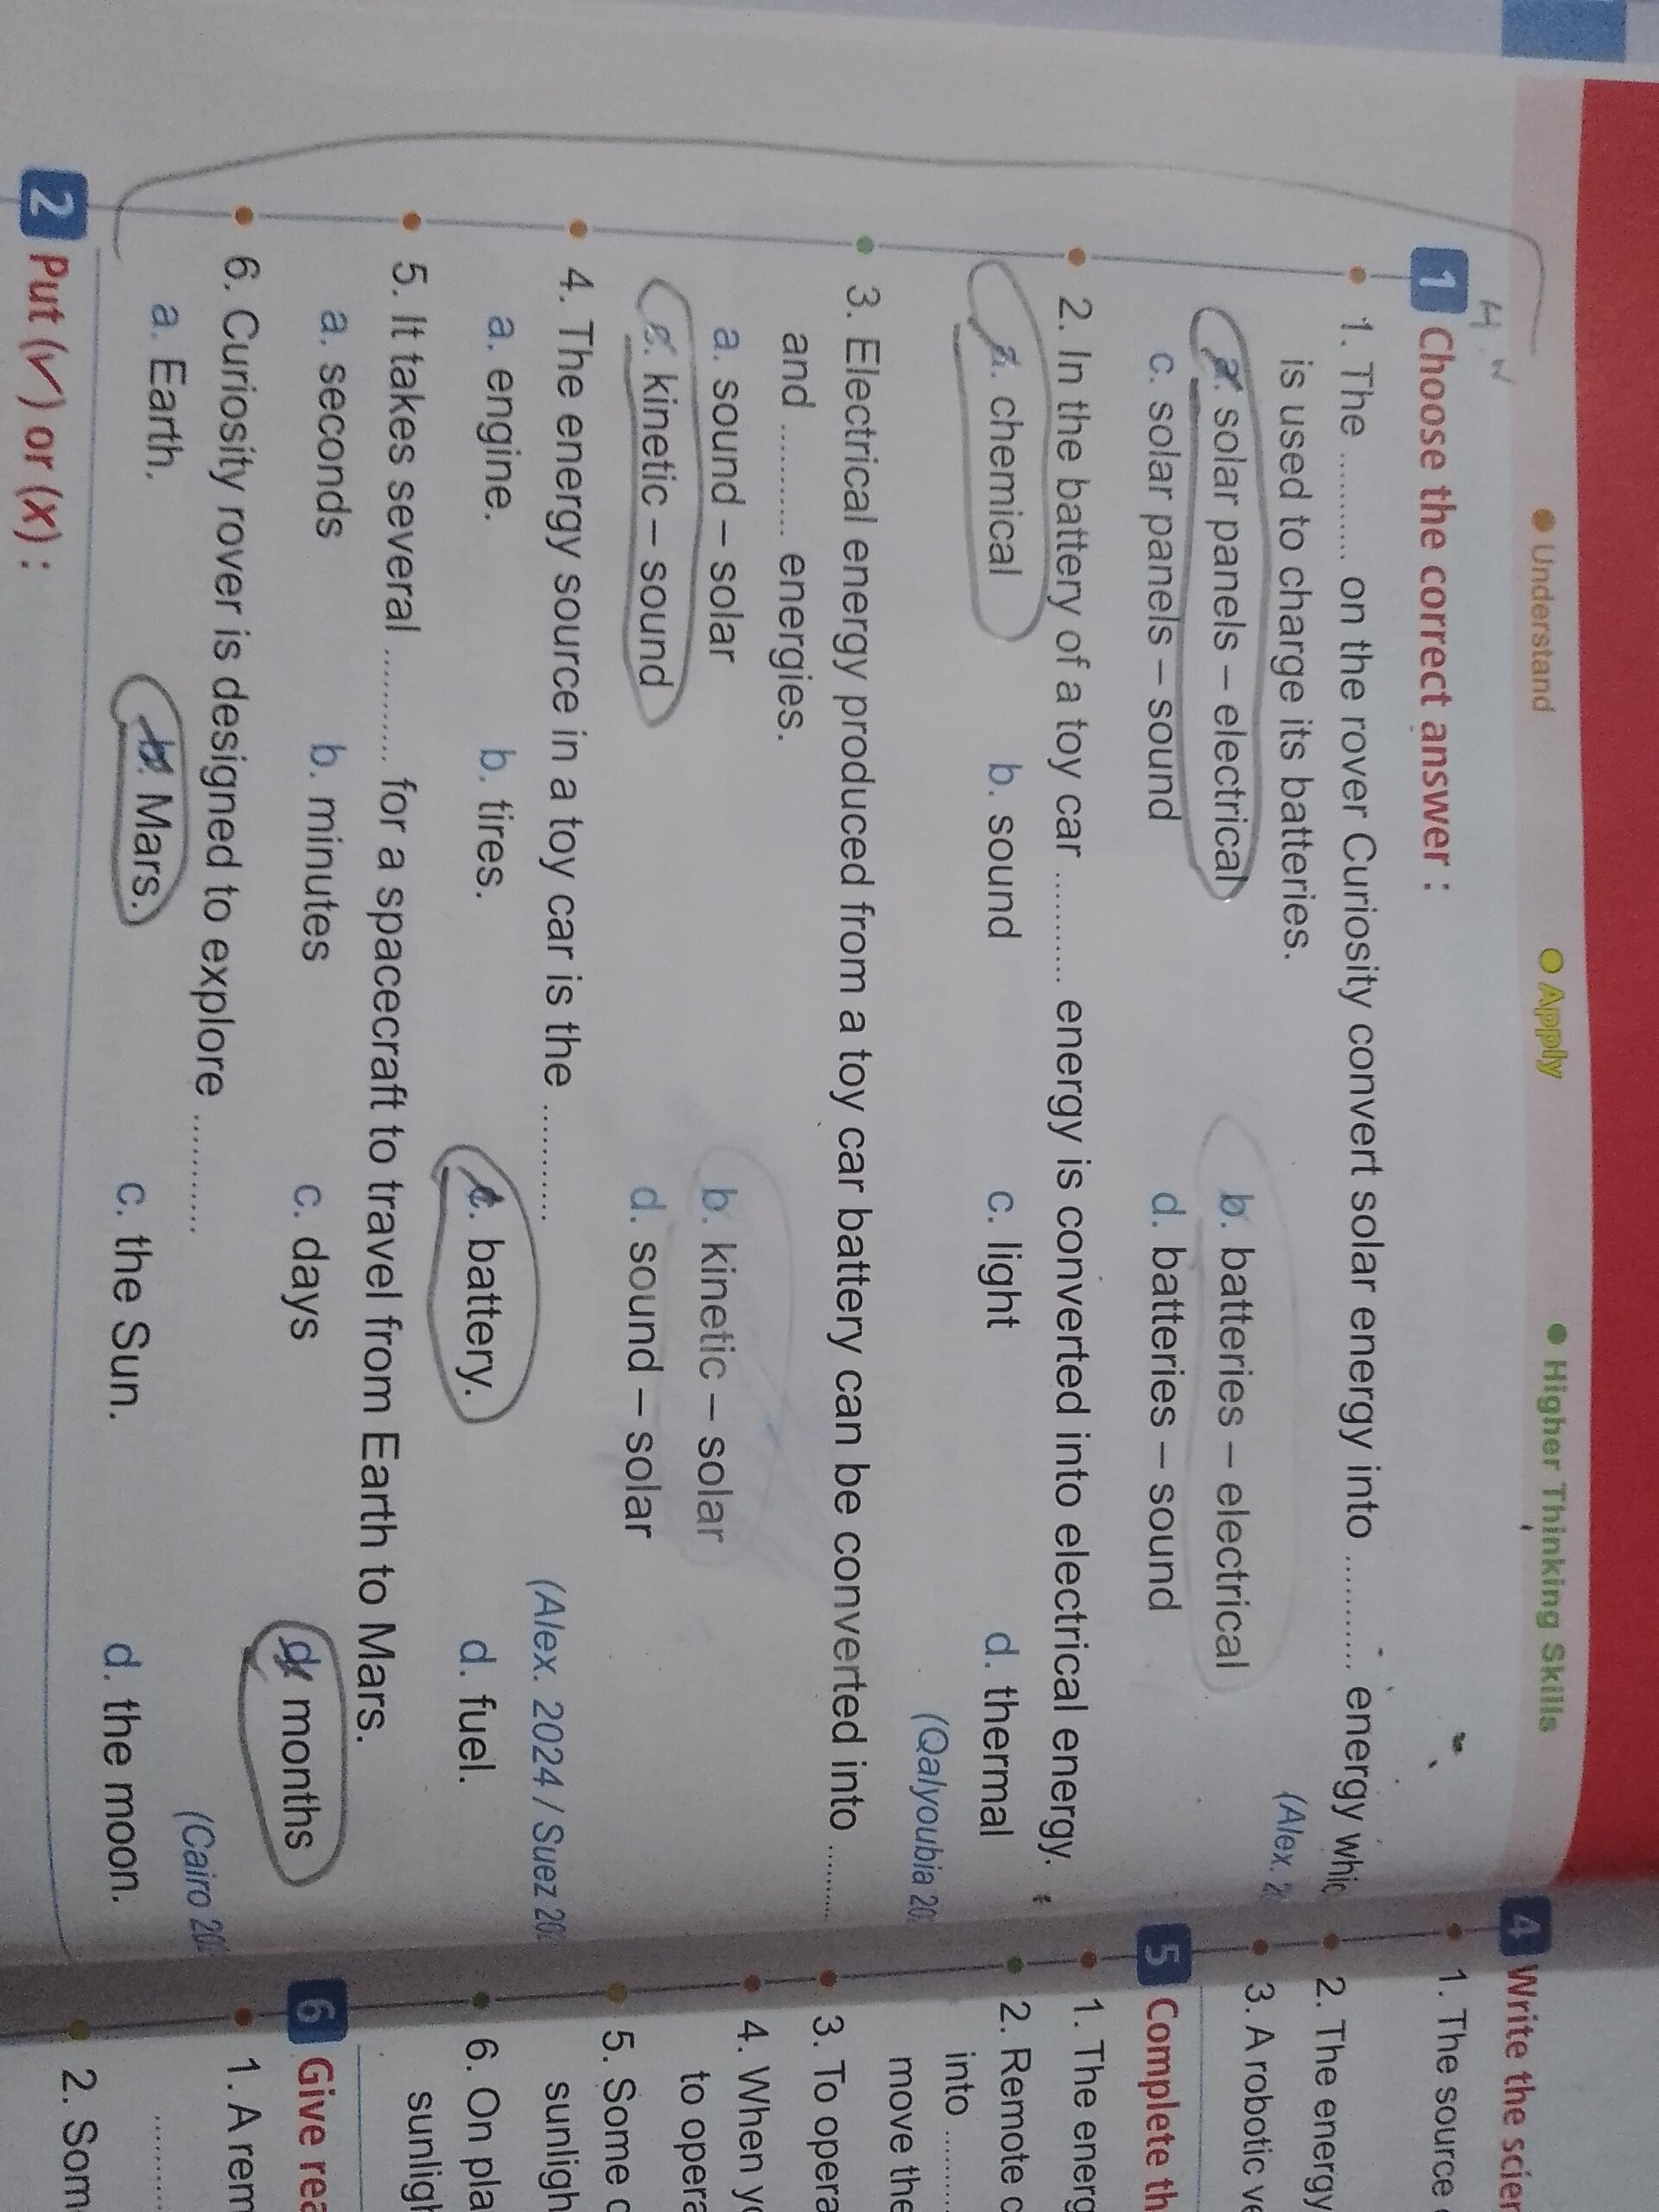 Understand Apply Higher Thinking Skills
H.W
1 Choose the correct answer :
1. The .......... on the rover Curiosity convert solar energy into .......... energy
is used to charge its batteries. (Alex.
a. solar panels – electrical b. batteries – electrical
c. solar panels – sound d. batteries – sound
2. In the battery of a toy car .......... energy is converted into electrical energy.
a. chemical b. sound c. light d. thermal
(Qalyoubia
3. Electrical energy produced from a toy car battery can be converted into ..........
and .......... energies.
a. sound – solar b. kinetic – solar
c. kinetic – sound d. sound – solar
4. The energy source in a toy car is the .......... (Alex. 2024 / Suez
a. engine. b. tires. c. battery. d. fuel.
5. It takes several .......... for a spacecraft to travel from Earth to Mars.
a. seconds b. minutes c. days d. months
6. Curiosity rover is designed to explore .......... (Cairo
a. Earth. b. Mars. c. the Sun. d. the moon.
2 Put (✓) or (x) :
4 Write the
1. The source
2. The energy
3. A robotic
5 Complete
1. The
2. Remote
into ..........
move the
3. To
4. When
to
5. Some
6. On
6 Give
1. A
2.